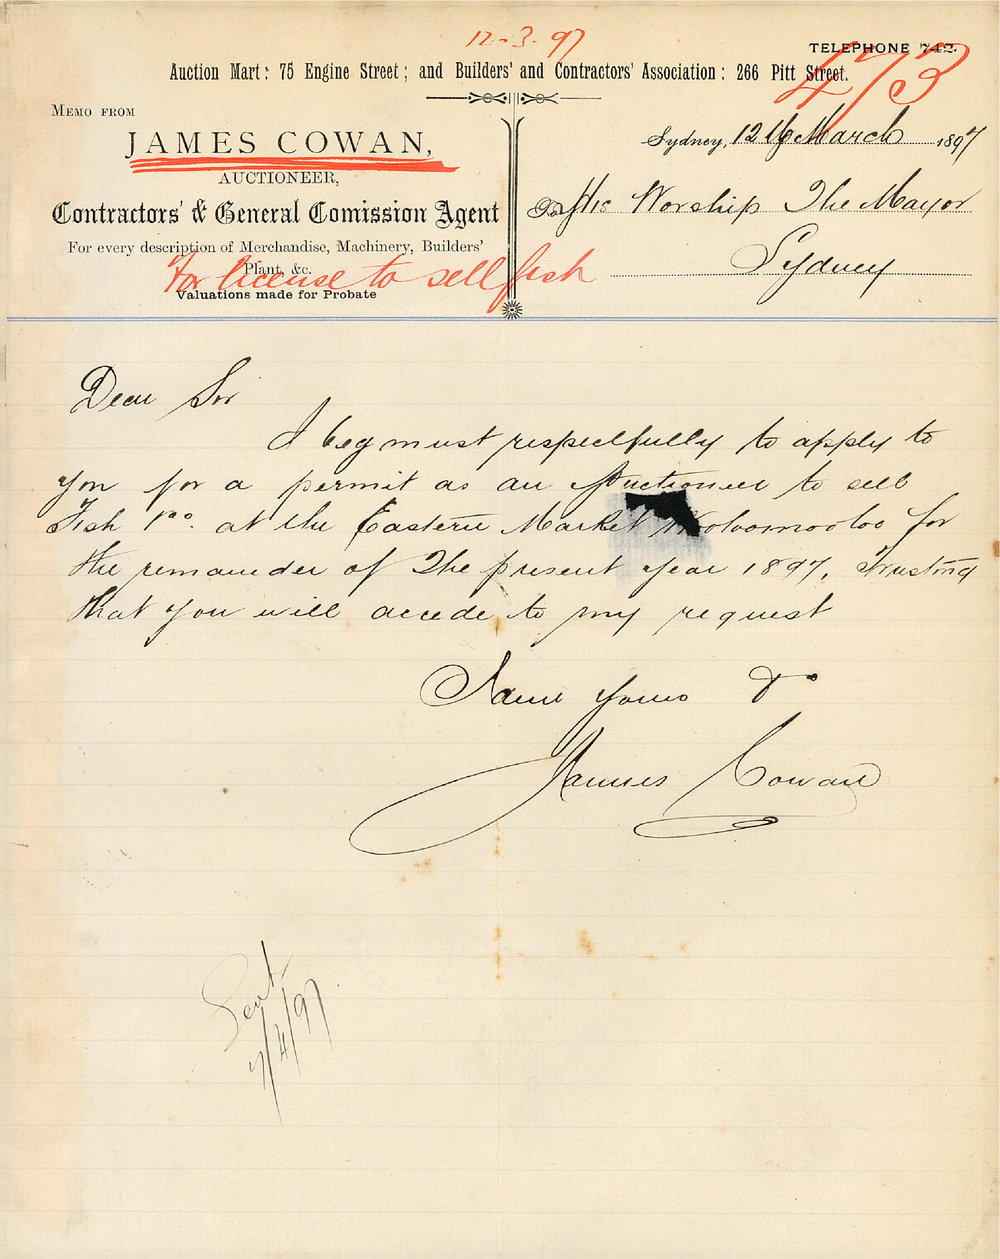 12-3-97
TELEPHONE 742.
473
Auction Mart: 75 Engine Street; and Builders' and Contractors' Association: 266 Pitt Street.
MEMO FROM
JAMES COWAN,
AUCTIONEER,
Contractors' & General Comission Agent
For every description of Merchandise, Machinery, Builders'
Plant, &c.
For license to sell fish
Valuations made for Probate
Sydney, 12th March 1897
To His Worship The Mayor
Sydney
Dear Sir
I beg most respectfully to apply to
you for a permit as an Auctioneer to sell
Fish &c. at the Eastern Market Wooloomooloo for
the remainder of The present year 1897. Trusting
that you will accede to my request
I am Yours &c
James Cowan
Sent
7/4/97